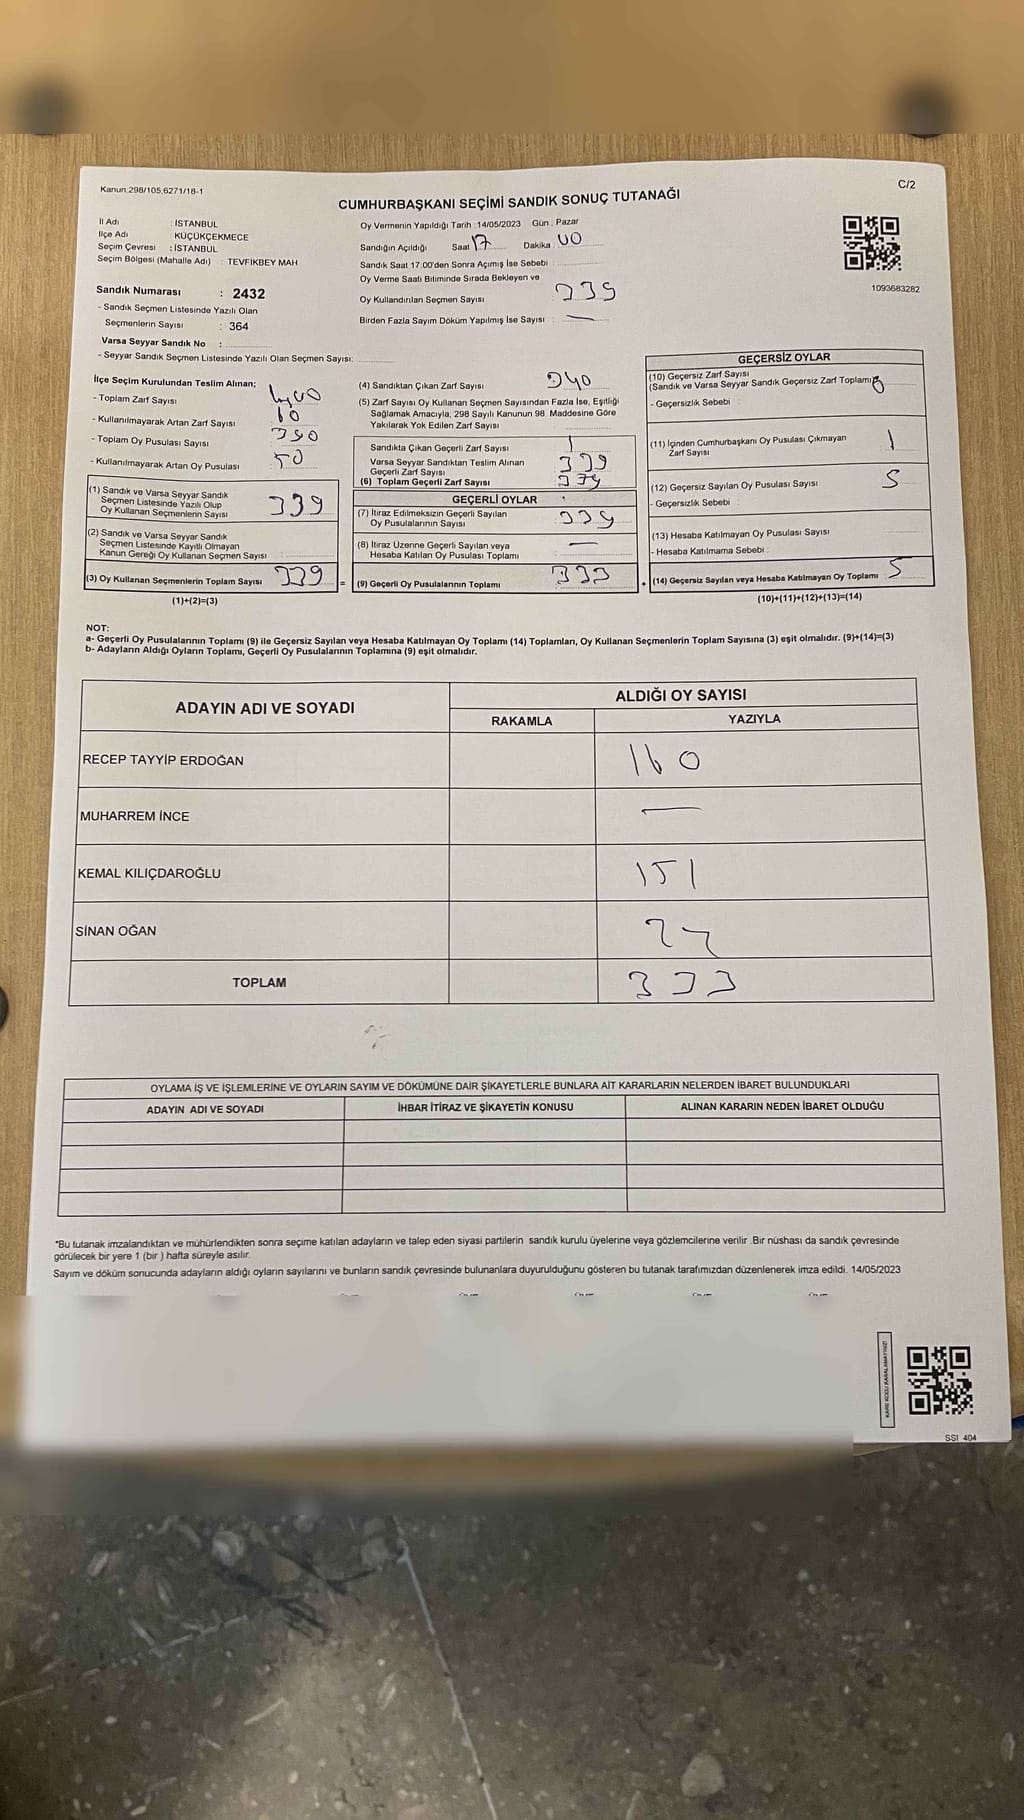 Kanun:298/105,6271/18-1
C/2
CUMHURBAŞKANI SEÇİMİ SANDIK SONUÇ TUTANAĞI
İl Adı : İSTANBUL
İlçe Adı : KÜÇÜKÇEKMECE
Seçim Çevresi : İSTANBUL
Seçim Bölgesi (Mahalle Adı) : TEVFİKBEY MAH
Sandık Numarası : 2432
- Sandık Seçmen Listesinde Yazılı Olan
Seçmenlerin Sayısı : 364
Varsa Seyyar Sandık No :
- Seyyar Sandık Seçmen Listesinde Yazılı Olan Seçmen Sayısı:
Oy Vermenin Yapıldığı Tarih : 14/05/2023 Gün : Pazar
Sandığın Açıldığı Saat 17 Dakika : 00
Sandık Saat 17:00'den Sonra Açımış İse Sebebi :
Oy Verme Saati Bitiminde Sırada Bekleyen ve
Oy Kullandırılan Seçmen Sayısı : 339
Birden Fazla Sayım Döküm Yapılmış İse Sayısı : —
1093683282
İlçe Seçim Kurulundan Teslim Alınan;
- Toplam Zarf Sayısı : 400
- Kullanılmayarak Artan Zarf Sayısı : 60
- Toplam Oy Pusulası Sayısı : 390
- Kullanılmayarak Artan Oy Pusulası : 50
(1) Sandık ve Varsa Seyyar Sandık
Seçmen Listesinde Yazılı Olup
Oy Kullanan Seçmenlerin Sayısı : 339
(2) Sandık ve Varsa Seyyar Sandık
Seçmen Listesinde Kayıtlı Olmayan
Kanun Gereği Oy Kullanan Seçmen Sayısı :
(3) Oy Kullanan Seçmenlerin Toplam Sayısı 339 =
(1)+(2)=(3)
(4) Sandıktan Çıkan Zarf Sayısı : 340
(5) Zarf Sayısı Oy Kullanan Seçmen Sayısından Fazla İse, Eşitliği
Sağlamak Amacıyla, 298 Sayılı Kanunun 98. Maddesine Göre
Yakılarak Yok Edilen Zarf Sayısı : 1
Sandıkta Çıkan Geçerli Zarf Sayısı
Varsa Seyyar Sandıktan Teslim Alınan
Geçerli Zarf Sayısı : 339
(6) Toplam Geçerli Zarf Sayısı
GEÇERLİ OYLAR
(7) İtiraz Edilmeksizin Geçerli Sayılan
Oy Pusulalarının Sayısı
(8) İtiraz Üzerine Geçerli Sayılan veya
Hesaba Katılan Oy Pusulası Toplamı : —
(9) Geçerli Oy Pusulalarının Toplamı 333 +
GEÇERSİZ OYLAR
(10) Geçersiz Zarf Sayısı
(Sandık ve Varsa Seyyar Sandık Geçersiz Zarf Toplamı)
- Geçersizlik Sebebi :
(11) İçinden Cumhurbaşkanı Oy Pusulası Çıkmayan
Zarf Sayısı : 1
(12) Geçersiz Sayılan Oy Pusulası Sayısı : 5
- Geçersizlik Sebebi :
(13) Hesaba Katılmayan Oy Pusulası Sayısı :
- Hesaba Katılmama Sebebi :
(14) Geçersiz Sayılan veya Hesaba Katılmayan Oy Toplamı : 5
(10)+(11)+(12)+(13)=(14)
NOT:
a- Geçerli Oy Pusulalarının Toplamı (9) ile Geçersiz Sayılan veya Hesaba Katılmayan Oy Toplamı (14) Toplamları, Oy Kullanan Seçmenlerin Toplam Sayısına (3) eşit olmalıdır. (9)+(14)=(3)
b- Adayların Aldığı Oyların Toplamı, Geçerli Oy Pusulalarının Toplamına (9) eşit olmalıdır.
ADAYIN ADI VE SOYADI
ALDIĞI OY SAYISI
RAKAMLA YAZIYLA
RECEP TAYYİP ERDOĞAN 160
MUHARREM İNCE —
KEMAL KILIÇDAROĞLU 151
SİNAN OĞAN
TOPLAM 333
OYLAMA İŞ VE İŞLEMLERİNE VE OYLARIN SAYIM VE DÖKÜMÜNE DAİR ŞİKAYETLERLE BUNLARA AİT KARARLARIN NELERDEN İBARET BULUNDUKLARI
ADAYIN ADI VE SOYADI İHBAR İTİRAZ VE ŞİKAYETİN KONUSU ALINAN KARARIN NEDEN İBARET OLDUĞU
*Bu tutanak imzalandıktan ve mühürlendikten sonra seçime katılan adayların ve talep eden siyasi partilerin sandık kurulu üyelerine veya gözlemcilerine verilir .Bir nüshası da sandık çevresinde
görülecek bir yere 1 (bir ) hafta süreyle asılır.
Sayım ve döküm sonucunda adayların aldığı oyların sayılarını ve bunların sandık çevresinde bulunanlara duyurulduğunu gösteren bu tutanak tarafımızdan düzenlenerek imza edildi. 14/05/2023
KARE KODU KARALAMAYINIZ!
SSI 404